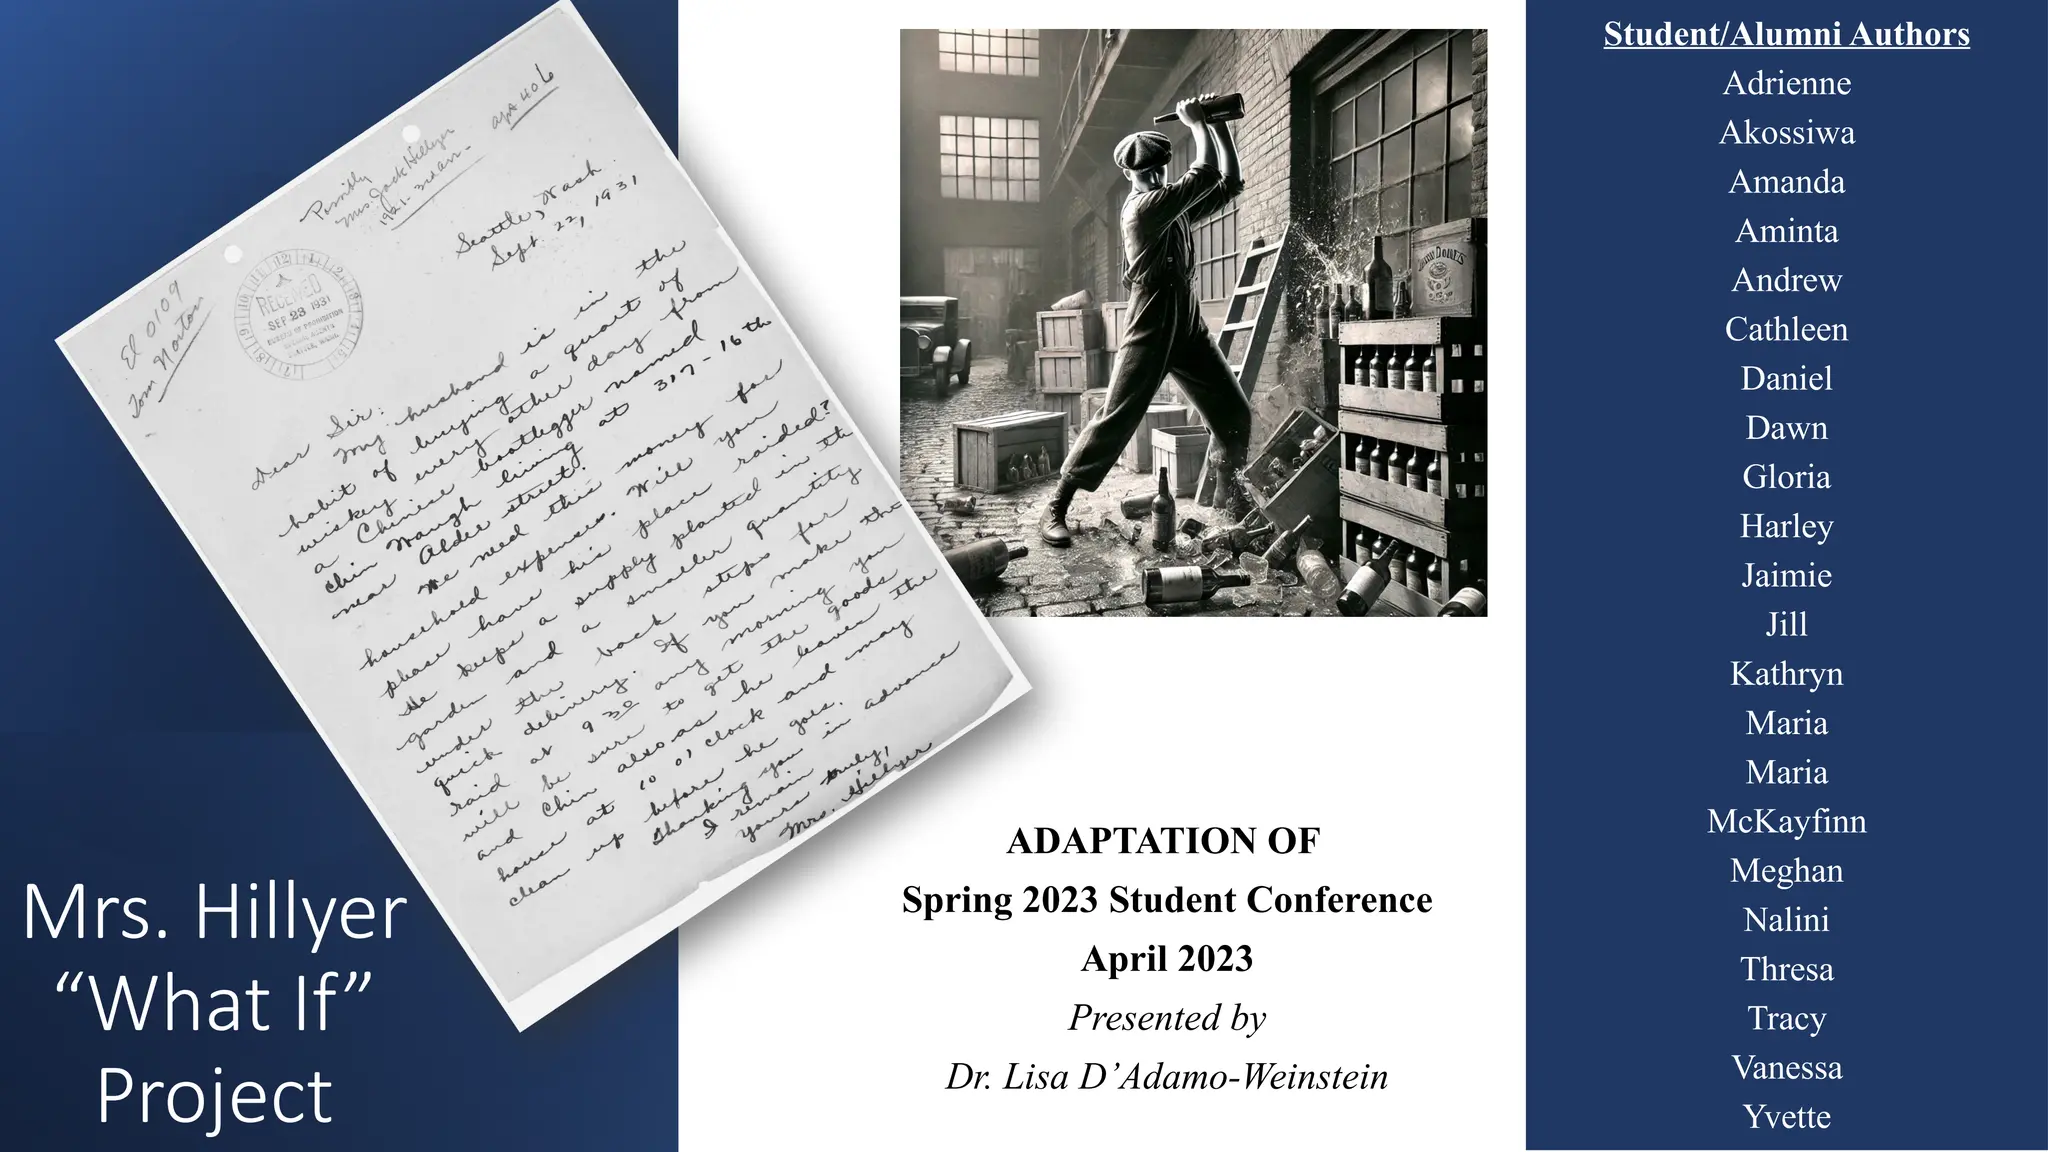 Possibly
Mrs. Jack Hillyer
1921-3rd av.
apt 406
El 0109
Tom Norton
RECEIVED
SEP 23 1931
BUREAU OF PROHIBITION
SEATTLE, WASH.
Seattle, Wash.
Sept. 22, 1931
Dear Sir:
My husband is in the
habit of buying a quart of
wiskey every other day from
a Chinese bootlegger named
Chin Waugh living at 317-16th
near Alder street.
We need this money for
household expenses. Will you
please have his place raided?
He keeps a supply planted in the
garden and a smaller quantity
under the back steps for
quick delivery. If you make the
raid at 9 30 any morning you
will be sure to get the goods
and Chin also as he leaves the
house at 10 o' clock and may
clean up before he goes.
Thanking you in advance
I remain
yours truly,
Mrs. Hillyer
Mrs. Hillyer
“What If”
Project
ADAPTATION OF
Spring 2023 Student Conference
April 2023
Presented by
Dr. Lisa D’Adamo-Weinstein
Student/Alumni Authors
Adrienne
Akossiwa
Amanda
Aminta
Andrew
Cathleen
Daniel
Dawn
Gloria
Harley
Jaimie
Jill
Kathryn
Maria
Maria
McKayfinn
Meghan
Nalini
Thresa
Tracy
Vanessa
Yvette